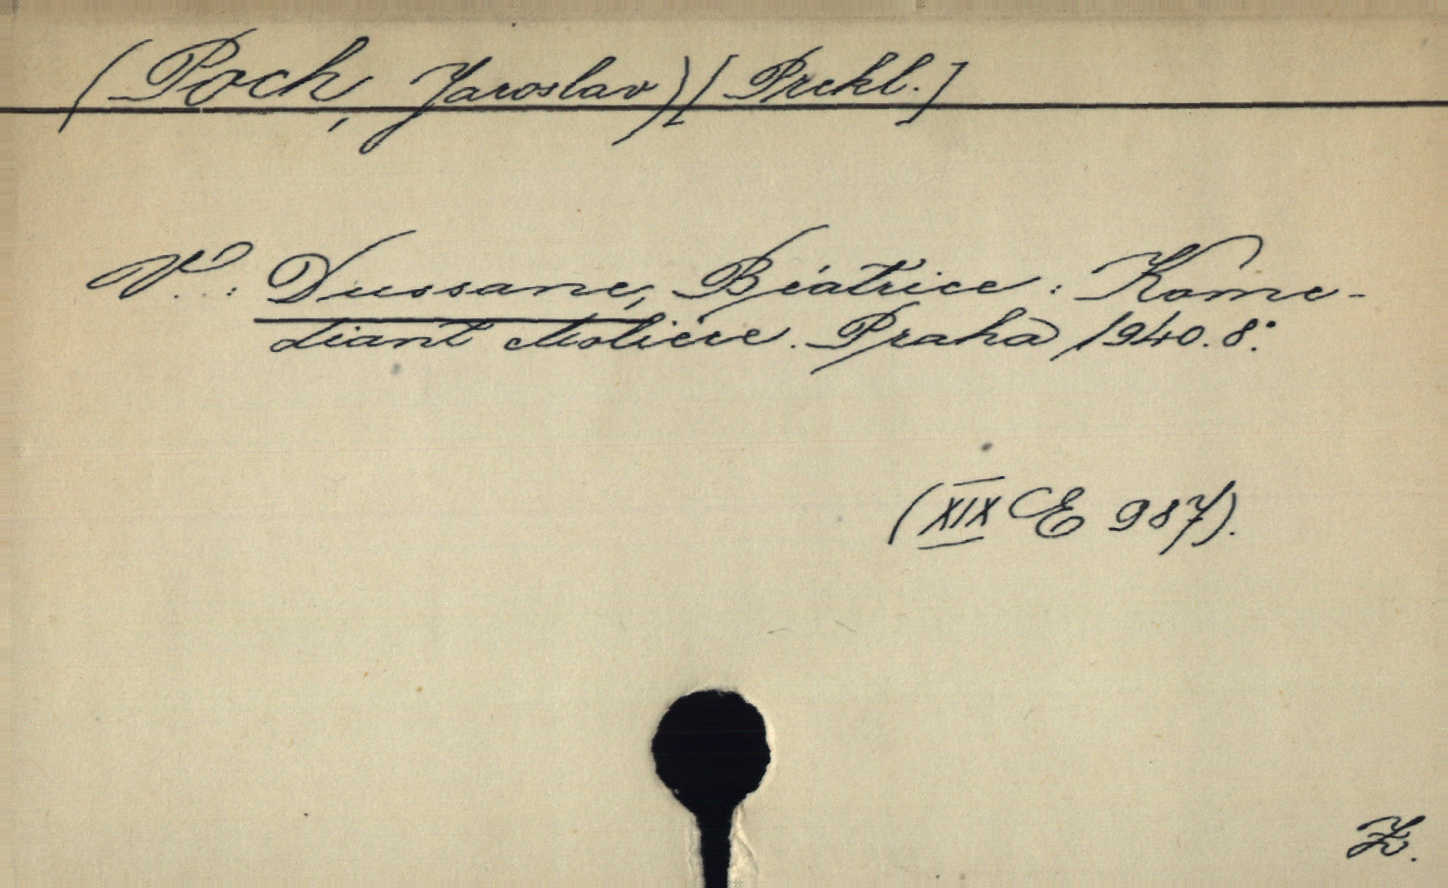 (Poch, Jaroslav) [Prekl.]
V.: Dussane, Béatrice: Kome-
diant Molière. Praha 1940. 8°.
(XIX E 987).
Z.